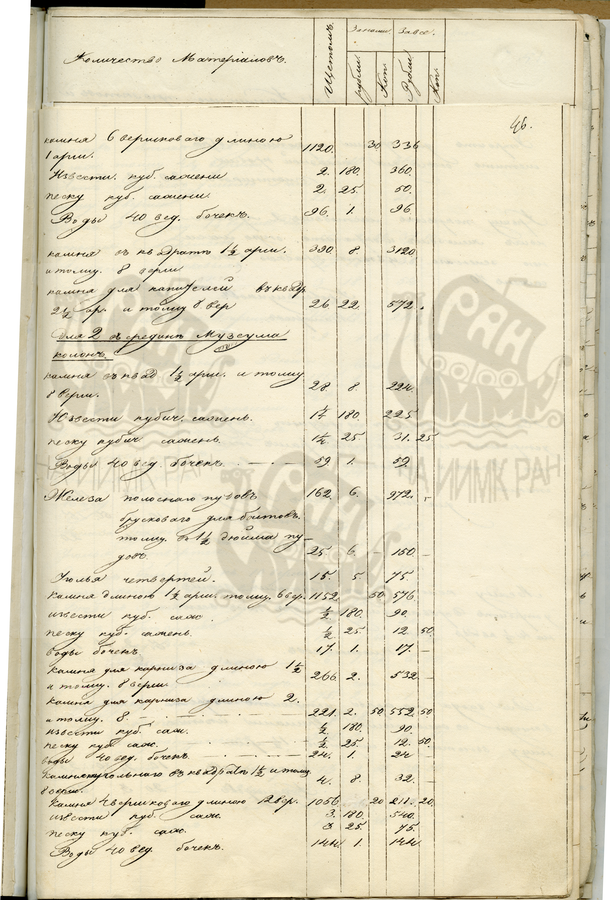 Количество Матерiаловъ.
Щетомъ.
За one. За все.
рубли
Коп
Рубли
Коп
46.
камня 6 вершковаго длиною
1 арш. 1120. 30 336
Извести куб. сажени 2. 180. 360.
песку куб. сажени 2. 25. 50.
Воды 40 вед. бочекъ. 96. 1. 96
камня въ квадратъ 1½ арш. 390. 8. 3120
и толщ. 8 верш
камня для капителей въ квадр
2½ ар. и толщ 8 вер 26 22. 572.
Для 2 въ срединъ Музеума
колонъ.
камня въ квад 1½ арш. и толщ
8 верш. 28 8 224.
Извести кубич. сажень. 1¼ 180. 225
песку кубич сажень. 1¼ 25 31. 25
Воды 40 вед. бочекъ. 59 1. 59
Железа полоснаго пудовъ 162. 6. 972. -
брусковаго для болтовъ
толщ. въ 1½ дюйма пу-
довъ 25 6. - 150. -
Уголья четвертей. 15. 5 75. -
Камня длиною 1½ арш. толщ. 6 вер. 1152. 50 576
извести куб. саж. ½ 180. 90.
песку куб. сажень. ½ 25 12. 50.
воды бочекъ 17. 1. 17. -
Камня для карниза длиною 1½
и толщ. 8 верш. 266 2. 532 -
Камня для карниза длиною 2.
и толщ. 8 221. 2. 50 552. 50
извести куб. саж. ½ 180. 90.
песку куб саж. ½ 25. 12. 50.
воды 40 вед. бочекъ. 24. 1. 24
Камня угольнаго въ квадратъ 1½ и толщ
8 верш. 4. 8. 32. -
Камня 4 вершковаго длиною 12 вер. 1056 20 211. 20.
извести куб. саж. 3. 180. 540.
песку куб. саж. 3 25. 75.
Воды 40 вед. бочекъ. 144 1. 144.
РАН
ИИМК
РАН
ИИМК
НА ИИМК РАН
НА ИИМК РАН
РАН
ИИМК